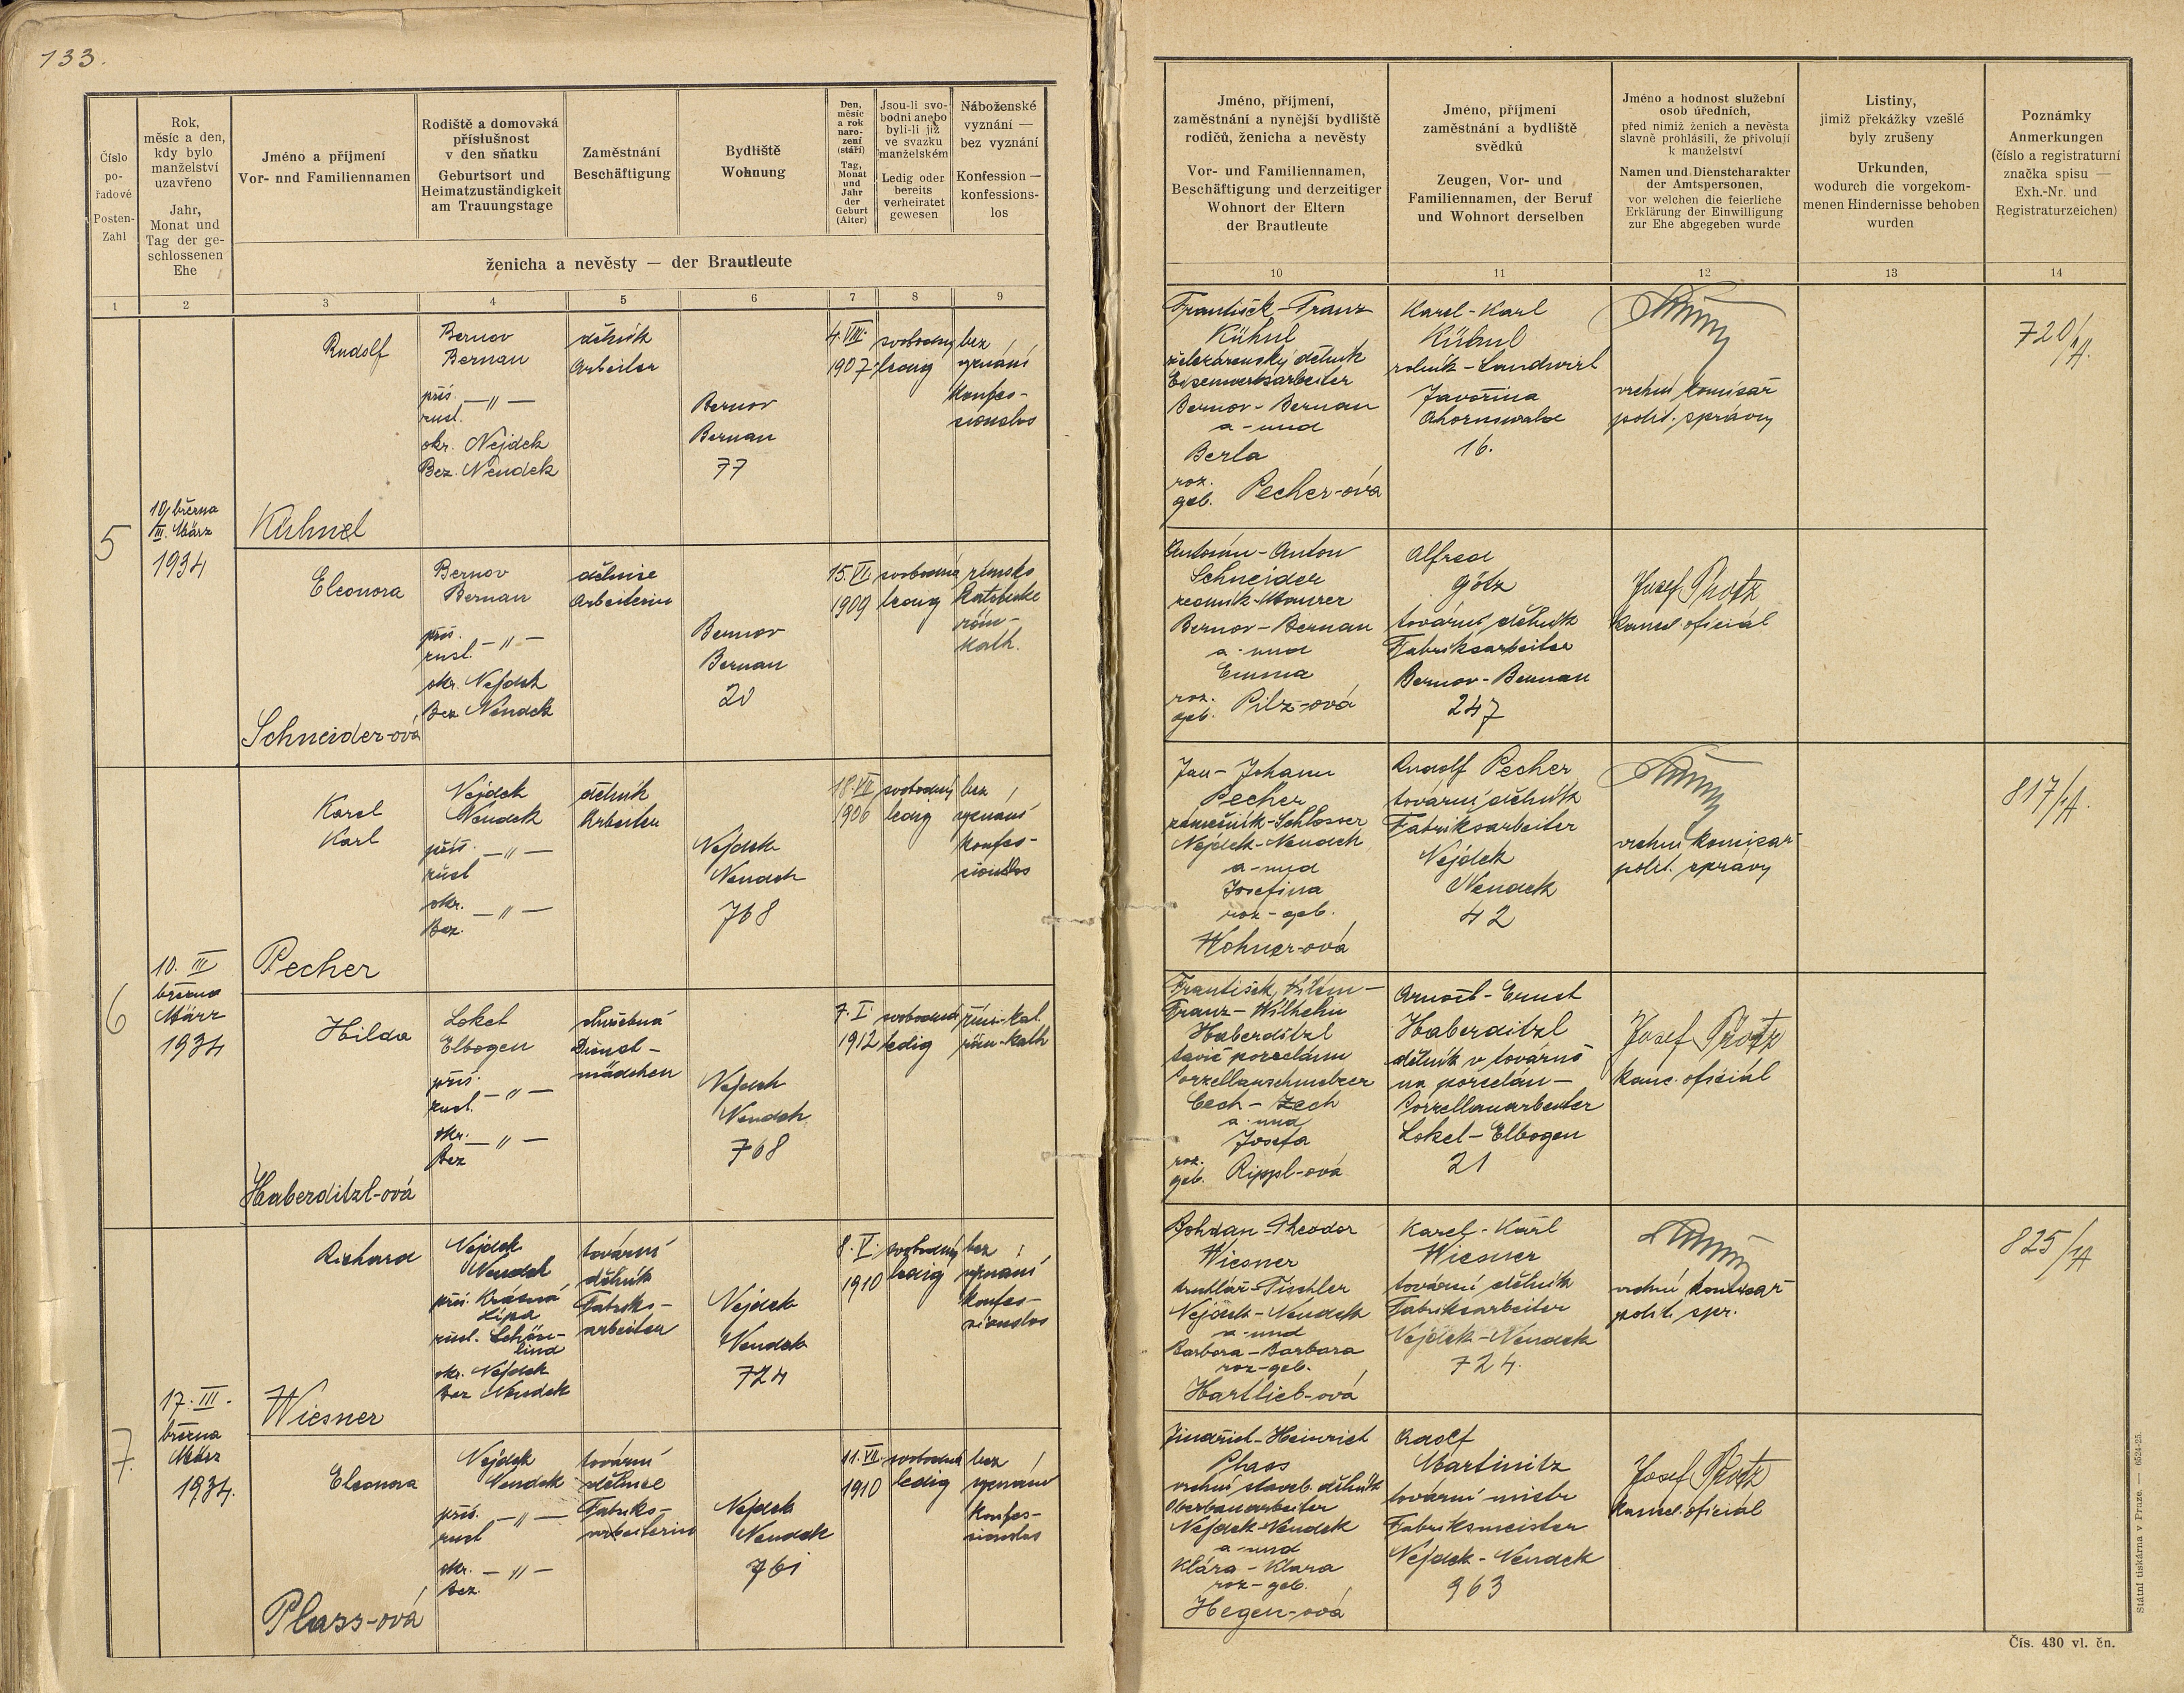 133.
Číslo
po-
řadové
Posten-
Zahl
Rok,
měsíc a den,
kdy bylo
manželství
uzavřeno
Jahr,
Monat und
Tag der ge-
schlossenen
Ehe
Jméno a příjmení
Vor- nnd Familiennamen
Rodiště a domovská
příslušnost
v den sňatku
Geburtsort und
Heimatzuständigkeit
am Trauungstage
Zaměstnání
Beschäftigung
Bydliště
Wohnung
Den,
měsíc
a rok
naro-
zení
(stáří)
Tag,
Monat
und
Jahr
der
Geburt
(Alter)
Jsou-li svo-
bodni anebo
byli-li již
ve svazku
manželském
Ledig oder
bereits
verheiratet
gewesen
Náboženské
vyznání —
bez vyznání
Konfession —
konfessions-
los
ženicha a nevěsty — der Brautleute
1 2 3 4 5 6 7 8 9
5
10 března
III. März
1934
Rudolf
Kühnel
Bernov
Bernau
přís. — „ —
zust.
okr. Nejdek
Bez. Neudek
dělník
Arbeiter
Bernov
Bernau
77
4. VIII.
1907
svobodný
ledig
bez
vyznání
konfes-
sionslos
Eleonora
Schneider-ová
Bernov
Bernau
přís. — „ —
zust.
okr. Nejdek
Bez Neudek
dělnice
Arbeiterin
Bernov
Bernau
20
15. VI
1909
svobodná
ledig
římsko
katolické
röm-
kath.
6
10. III
března
März
1934
Karel
Karl
Pecher
Nejdek
Neudek
přís. — „ —
zust
okr. — „ —
Bez.
dělník
Arbeiter
Nejdek
Neudek
768
18. VII
1906
svobodný
ledig
bez
vyznání
konfes-
sionslos
Hilda
Haberditzl-ová
Loket
Elbogen
přís. — „ —
zust.
okr. — „ —
Bez
služebná
Dienst-
mädchen
Nejdek
Neudek
768
7. I.
1912
svobodná
ledig
řím.-kat.
röm-kath
7.
17. III.
března
März
1934.
Richard
Wiesner
Nejdek
Neudek
přís. Krásná
Lípa
zust. Schön-
lind
okr. Nejdek
Bez Neudek
tovární
dělník
Fabriks-
arbeiter
Nejdek
Neudek
724
8. V.
1910
svobodný
ledig
bez
vyznání
konfes-
sionslos
Eleonora
Plass-ová
Nejdek
Neudek
přís. — „ —
zust
okr. — „ —
Bez.
tovární
dělnice
Fabriks-
arbeiterin
Nejdek
Neudek
761
11. VII.
1910
svobodná
ledig
bez
vyznání
konfes-
sionslos
Jméno, příjmení,
zaměstnání a nynější bydliště
rodičů, ženicha a nevěsty
Vor- und Familiennamen,
Beschäftigung und derzeitiger
Wohnort der Eltern
der Brautleute
Jméno, příjmení
zaměstnání a bydliště
svědků
Zeugen, Vor- und
Familiennamen, der Beruf
und Wohnort derselben
Jméno a hodnost služební
osob úředních,
před nimiž ženich a nevěsta
slavně prohlásili, že přivolují
k manželství
Namen und Dienstcharakter
der Amtspersonen,
vor welchen die feierliche
Erklärung der Einwilligung
zur Ehe abgegeben wurde
Listiny,
jimiž překážky vzešlé
byly zrušeny
Urkunden,
wodurch die vorgekom-
menen Hindernisse behoben
wurden
Poznámky
Anmerkungen
(číslo a registraturní
značka spisu —
Exh.-Nr. und
Registraturzeichen)
10 11 12 13 14
František-Franz
Kühnl
železárenský dělník
Eisenwerksarbeiter
Bernov-Bernau
a-und
Berta
roz.
geb. Pecher-ová
Karel-Karl
Kühnl
rolník-Landwirt
Javořina
Ahornswald
16.
vrchní komisař
polit. správy
720/A.
Antonín-Anton
Schneider
zedník-Maurer
Bernov-Bernau
a-und
Emma
roz.
geb. Pilz-ová
Alfred
Götz
tovární dělník
Fabriksarbeiter
Bernov-Bernau
247
Josef Protz
kancel. oficiál
Jan-Johann
Pecher
zámečník-Schlosser
Nejdek-Neudek
a-und
Josefina
roz-geb.
Wohner-ová
Rudolf Pecher
tovární dělník
Fabriksarbeiter
Nejdek
Neudek
42
vrchní komisař
polit. správy
817/A.
František Vilém-
Franz-Wilhelm
Haberditzl
tavič porcelánu
Porzellanschmelzer
Cech-Zech
a und
Josefa
roz.
geb. Rippl-ová
Arnošt-Ernst
Haberditzl
dělník v továrně
na porcelán-
Porzellanarbeiter
Loket-Elbogen
21
Josef Protz
kanc. oficiál
Bohdan-Theodor
Wiesner
truhlář-Tischler
Nejdek-Neudek
a-und
Barbora-Barbara
roz-geb.
Hartlieb-ová
Karel-Karl
Wiesner
tovární dělník
Fabriksarbeiter
Nejdek-Neudek
724.
vrchní komisař
polit. spr.
825/A
Jindřich-Heinrich
Plass
vrchní staveb. dělník
Oberbauarbeiter
Nejdek-Neudek
a-und
Klára-Klara
roz-geb.
Hegen-ová
Adolf
Martinitz
tovární mistr
Fabriksmeister
Nejdek-Neudek
963
Josef Protz
kancel. oficiál
Státní tiskárna v Praze. — 6524-25.
Čís. 430 vl. čn.